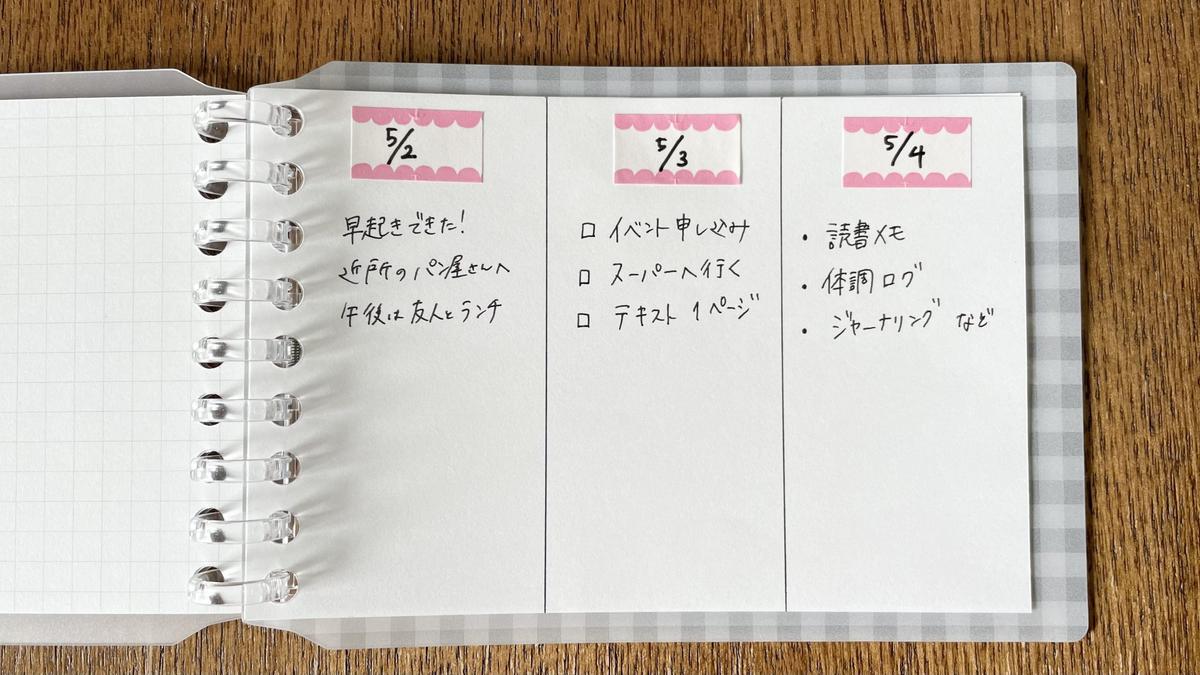 5/2
早起きできた!
近所のパン屋さんへ
午後は友人とランチ
5/3
□ イベント申し込み
□ スーパーへ行く
□ テキスト 1ページ
5/4
・読書メモ
・体調ログ
・ジャーナリング など